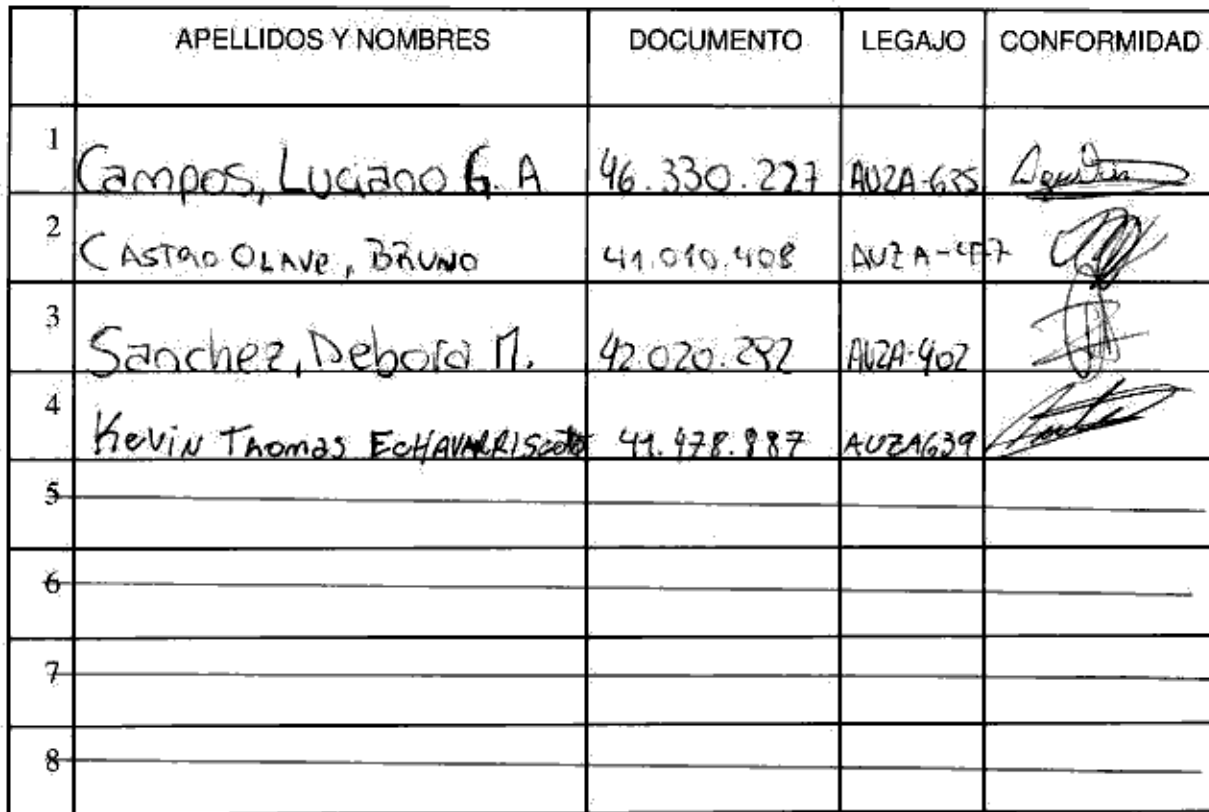 APELLIDOS Y NOMBRES DOCUMENTO LEGAJO CONFORMIDAD
1 Campos, Luciano G. A 46.330.227 AUZA-635 Agustin
2 CASTRO OLAVE, BRUNO 41.010.408 AUZA-477
3 Sanchez, Debora M. 42.020.292 AUZA-402
4 Kevin Thomas ECHAVARRI 41.978.887 AUZA639
5
6
7
8